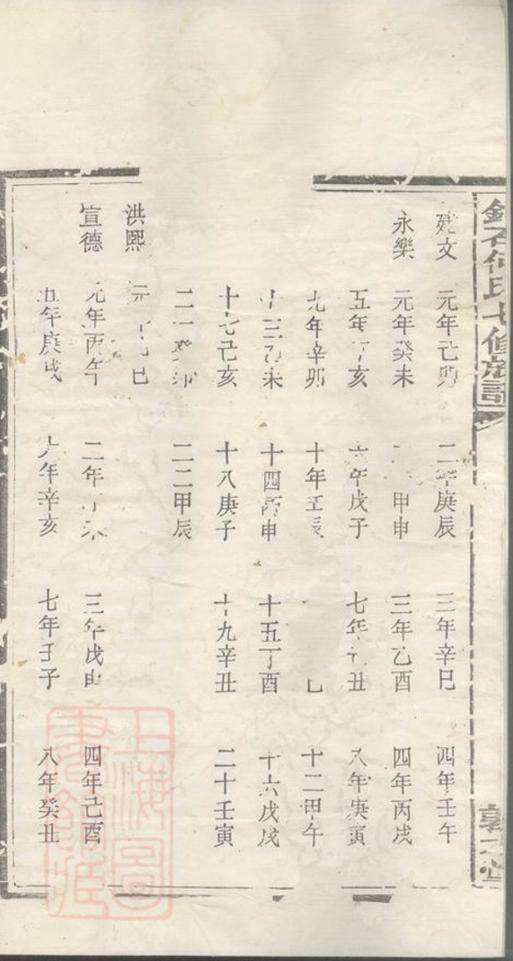 何氏七修族譜
建文 元年己卯 二年庚辰 三年辛巳 四年壬午
永樂 元年癸未 甲申 三年乙酉 四年丙戌
五年丁亥 六年戊子 七年 丑 八年庚寅
九年辛卯 十年壬辰 十二甲午
十三乙未 十四丙申 十五丁酉 十六戊戌
十七己亥 十八庚子 十九辛丑 二十壬寅
二一癸卯 二二甲辰
洪熙 元
宣德 元年丙午 二年 三年戊申 四年己酉
五年庚戌 六年辛亥 七年壬子 八年癸丑
上海圖書館藏